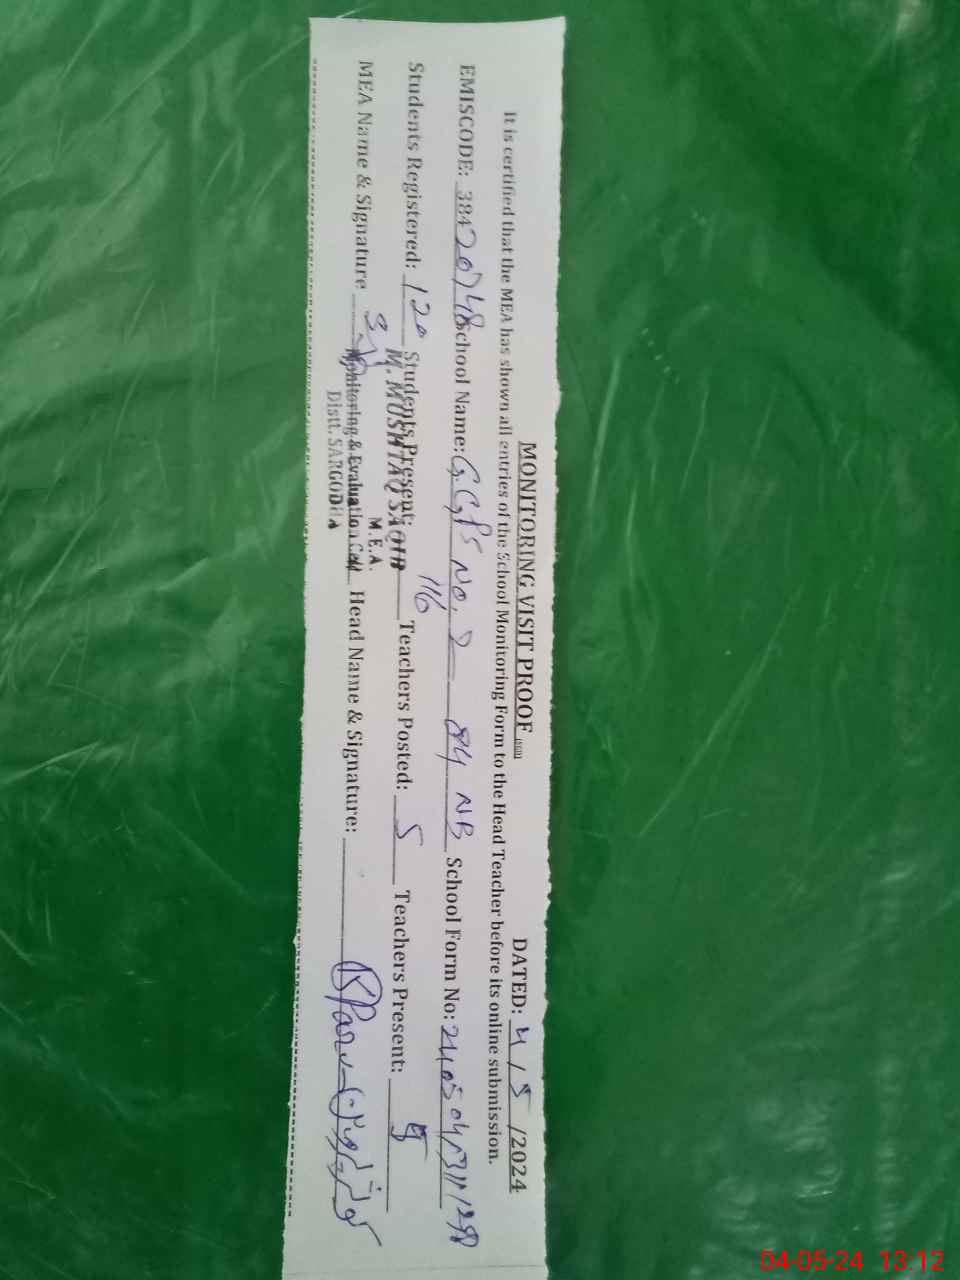 MONITORING VISIT PROOF DATED: 4/5/2024
It is certified that the MEA has shown all entries of the School Monitoring Form to the Head Teacher before its online submission.
EMISCODE: 38420748 School Name: GGPS No. 2 84 NB School Form No:
Students Registered: 120 Students Present: 116 Teachers Posted: 5 Teachers Present:
M. MUSHTAQ SAQIB
M.E.A.
MEA Name & Signature Head Name & Signature:
Monitoring & Evaluation Cell
Distt. SARGODHA
04-05-24 13:12